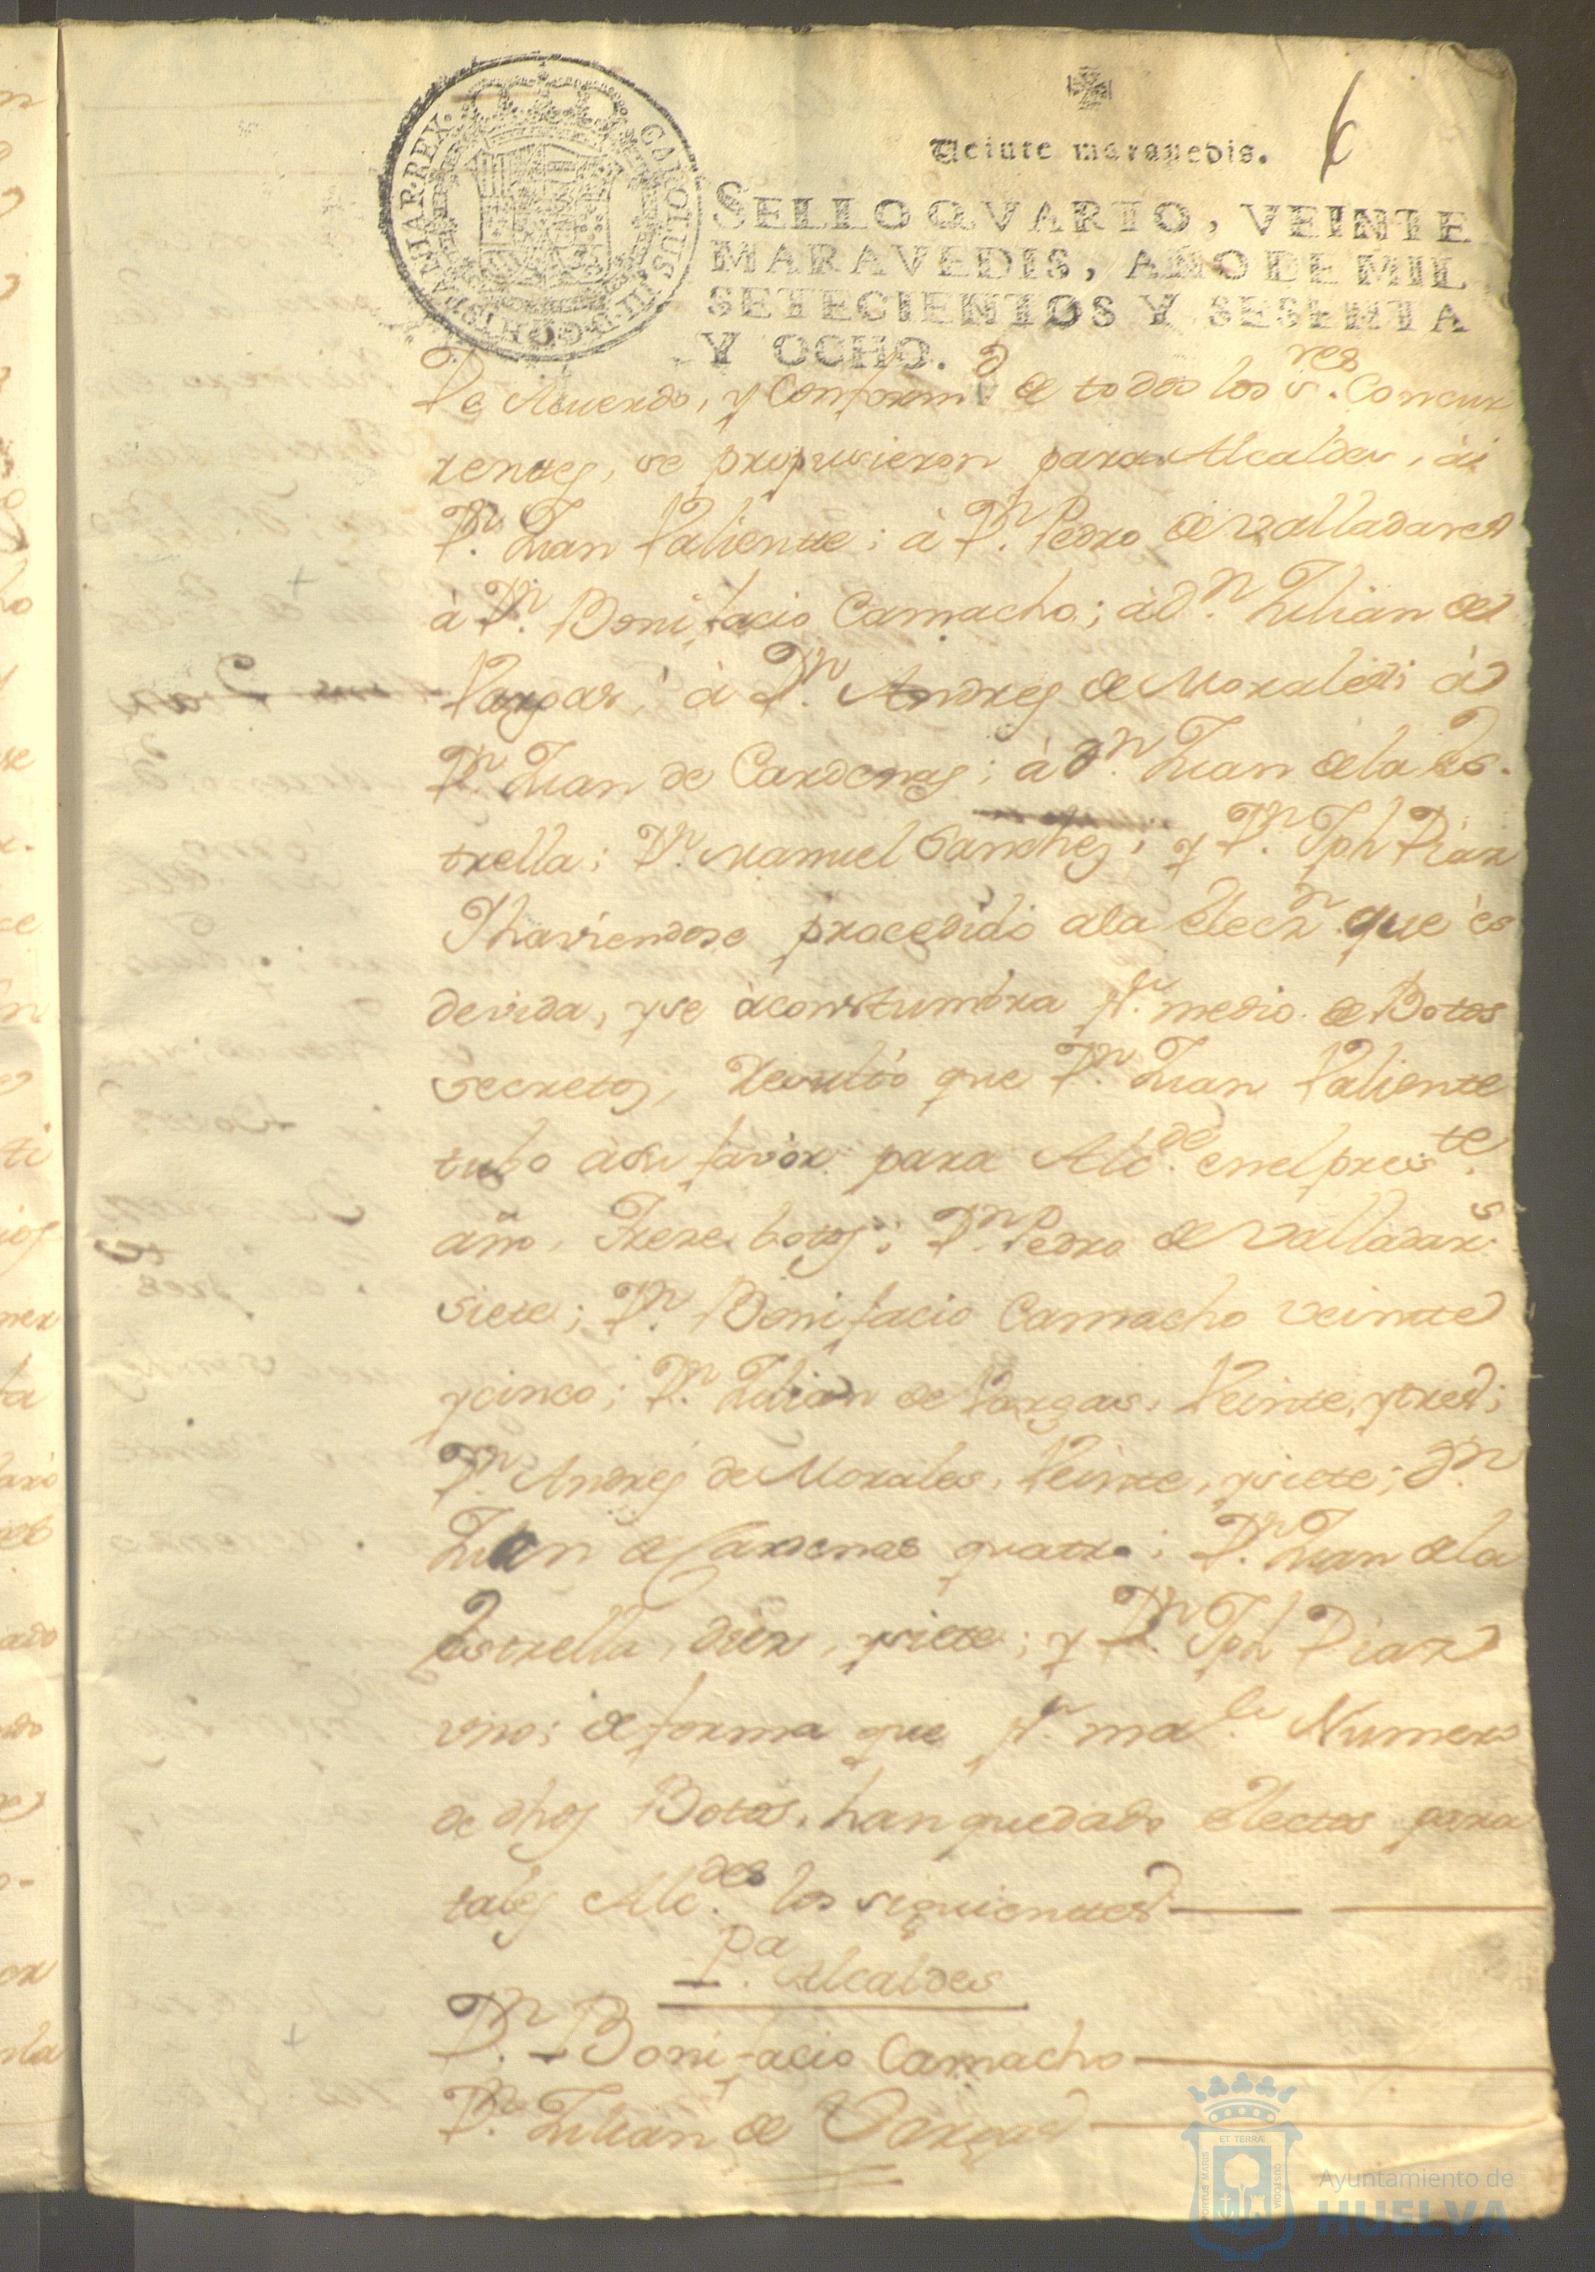 6
Veinte maravedis.
CAROLUS III D.G. HISPANIAR. REX.
SELLO QVARTO, VEINTE
MARAVEDIS, AÑO DE MIL
SETECIENTOS Y SESENTA
Y OCHO.
De Acuerdo, y Conformd. de todos los Sres. Concur
rentes, se propusieron para Alcaldes, à
Dn. Juan Valiente; à Dn. Pedro de Valladares
à Dn. Bonifacio Camacho; à dn. Julian de
Vargas; à Dn. Andres de Morales; à
Dn. Juan de Cardenas; à dn. Juan de la Es
trella; Dn. Manuel Sanchez; y Dn. Jph Diaz
Y haviendose procedido a la elecn. que es
devida, y se àcostumbra pr. medio de Botos
Secretos, Resultó que Dn. Juan Valiente
tubo à su favor para Alcde. en el preste.
año, Trese botos; Dn. Pedro de Valladars.
siete; Dn. Bonifacio Camacho veinte
y cinco; Dn. Julian de Vargas, Veinte, y tres;
Dn. Andres de Morales, Veinte, y siete; Dn.
Juan de Cardenas quatro; Dn. Juan de la
Estrella, diez, y siete; y Dn. Jph Diaz
uno; de forma que pr. maior Numero
de dhos Botos, han quedado electos para
tales Alcdes. los siguientes
Pa. Alcaldes
Dn. Bonifacio Camacho
Dn. Julian de Vargas
PORTUS MARIS ET TERRÆ CUSTODIA
Ayuntamiento de
HUELVA